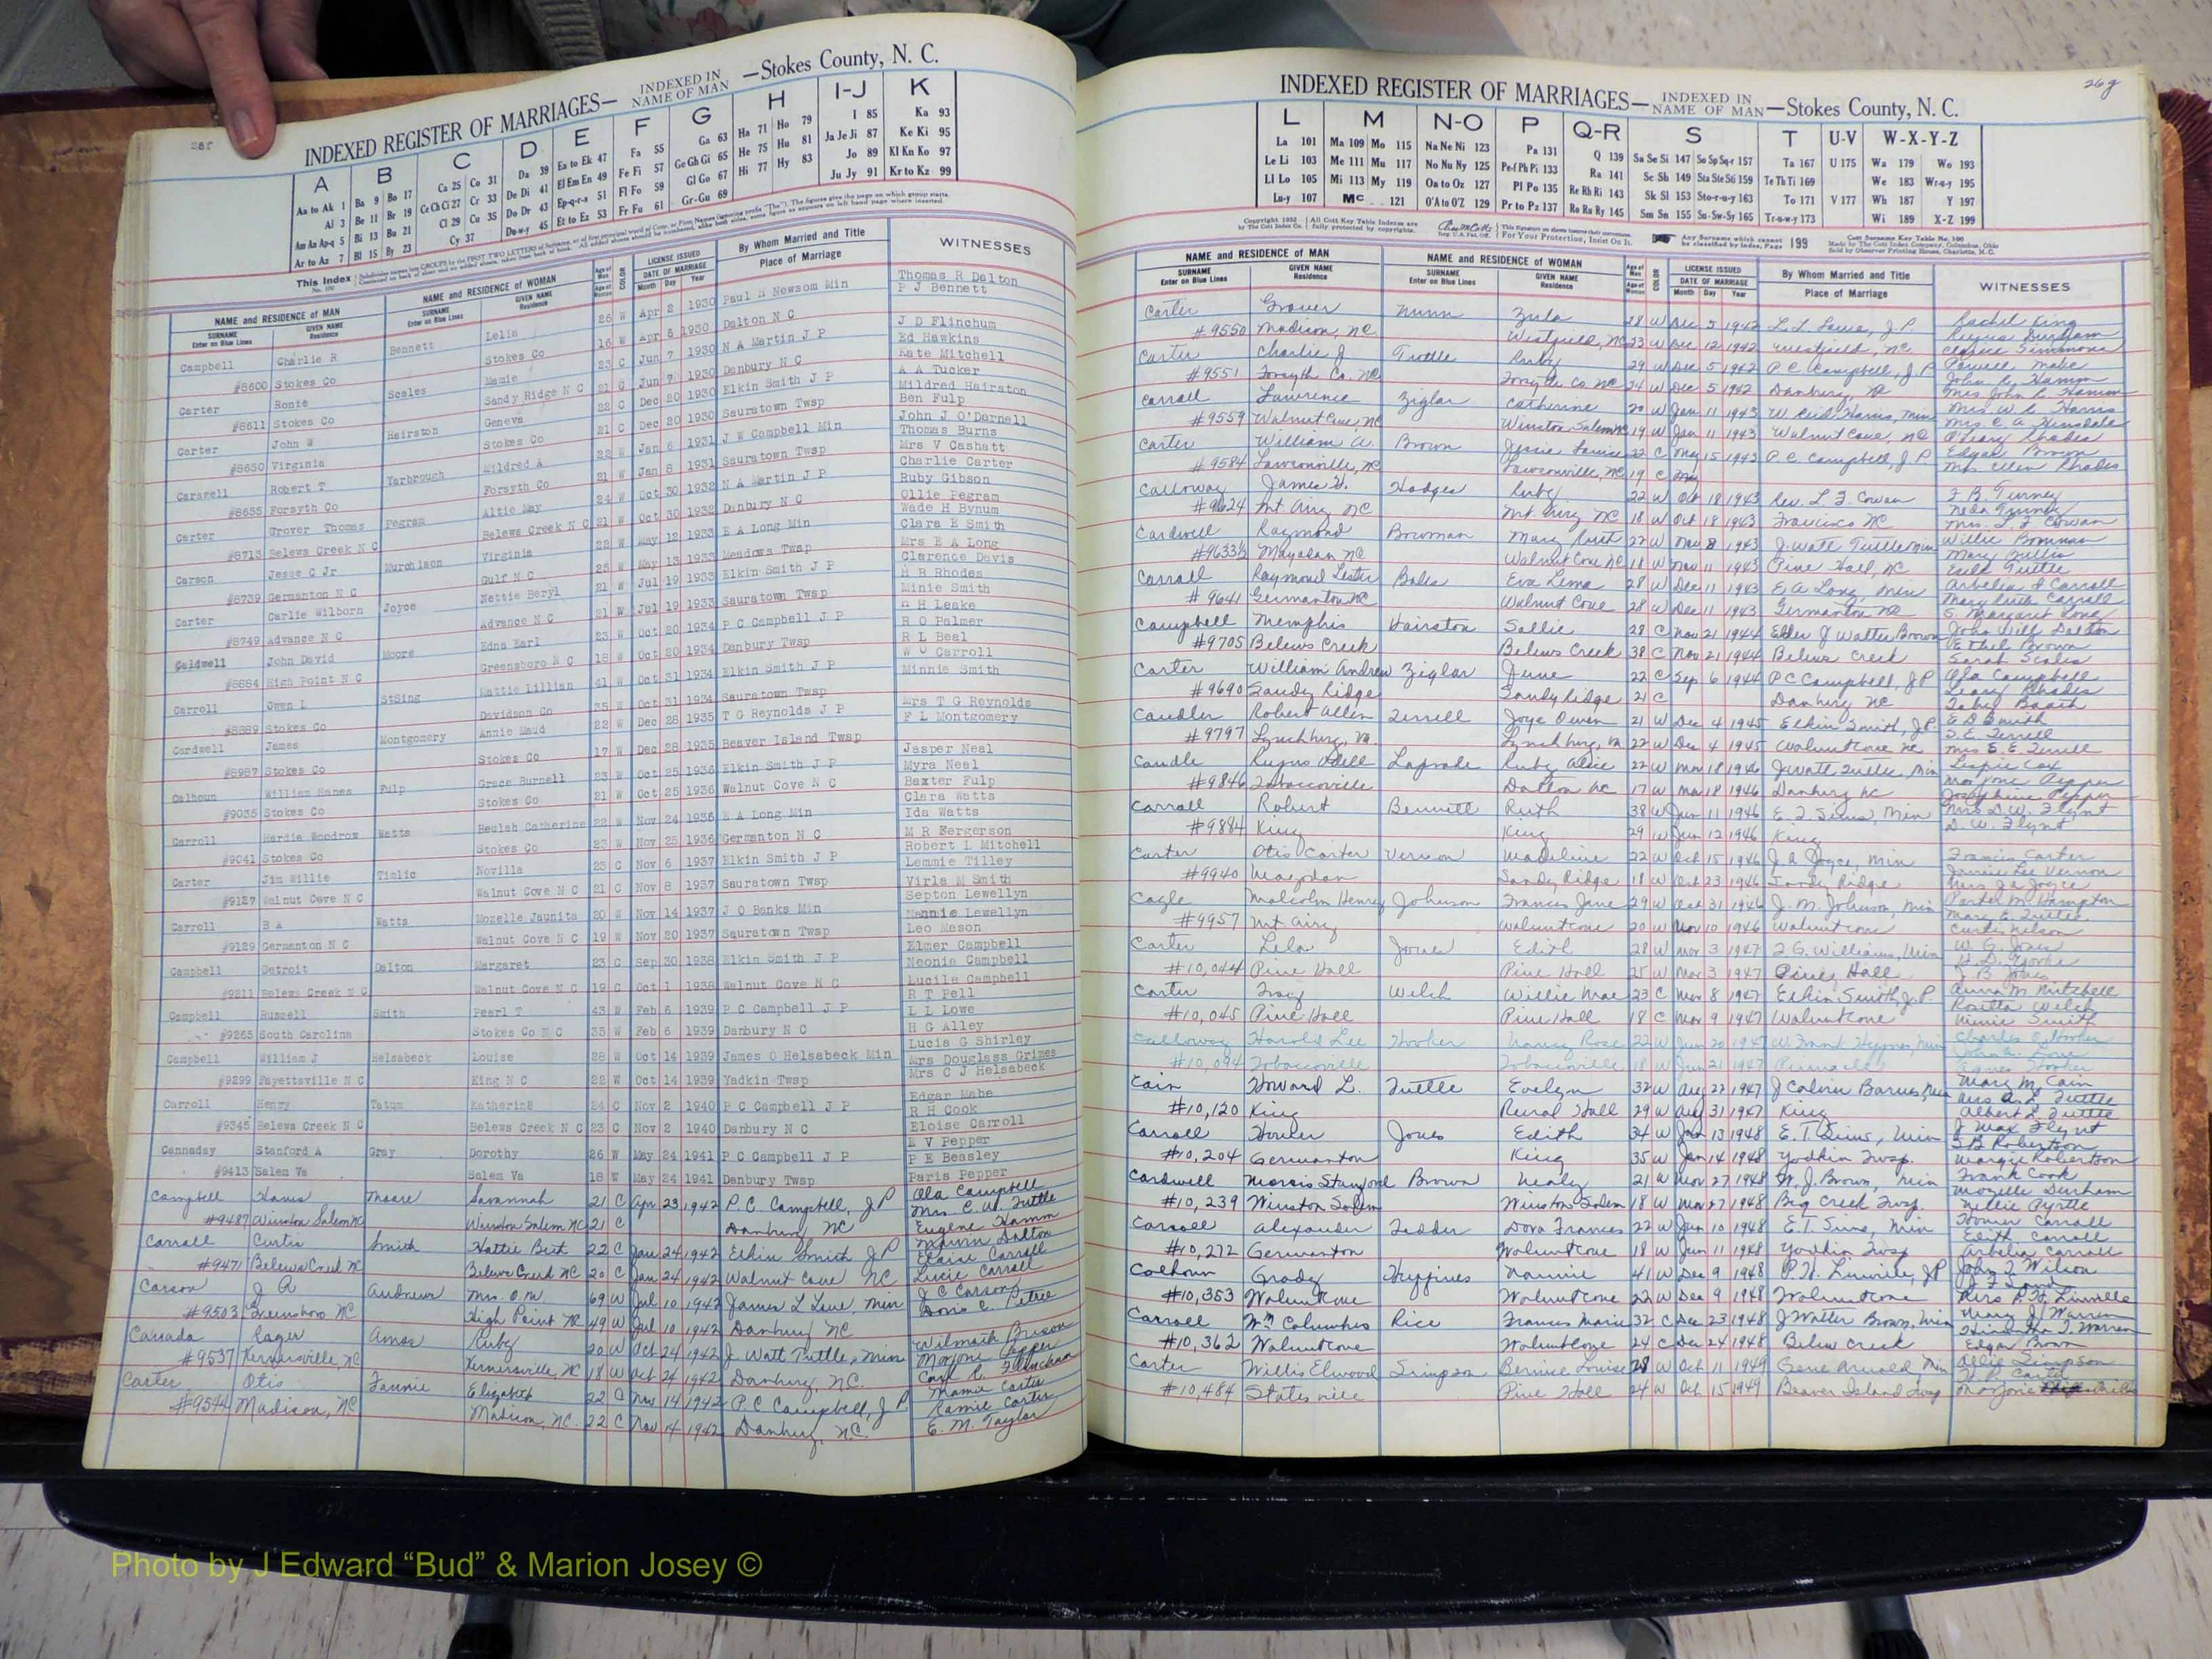 INDEXED REGISTER OF MARRIAGES— INDEXED IN NAME OF MAN —Stokes County, N. C.
A B C D E F G H I-J K
Aa to Ak 1 Ba 9 Bo 17 Ca 25 Co 31 Da 39 Ea to Ek 47 Fa 55 Ga 63 Ha 71 Ho 79 I 85 Ka 93
Al 3 Be 11 Br 19 Ce Ch Ci 27 Cr 33 De Di 41 El Em En 49 Fe Fi 57 Ge Gh Gi 65 He 75 Hu 81 Ja Je Ji 87 Ke Ki 95
Am An Ap-q 5 Bi 13 Bu 21 Cl 29 Cu 35 Do Dr 43 Ep-q-r-s 51 Fl Fo 59 Gl Go 67 Hi 77 Hy 83 Jo 89 Kl Kn Ko 97
Ar to Az 7 Bl 15 By 23 Cy 37 Du-w-y 45 Et to Ez 53 Fr Fu 61 Gr-Gu 69 Ju Jy 91 Kr to Kz 99
NAME and RESIDENCE of MAN NAME and RESIDENCE of WOMAN LICENSE ISSUED By Whom Married and Title WITNESSES
SURNAME Enter on Blue Lines GIVEN NAME Residence SURNAME Enter on Blue Lines GIVEN NAME Residence COLOR DATE OF MARRIAGE Month Day Year Place of Marriage
Campbell Charlie R Bennett Lelia 26 W Apr 2 1930 Paul H Newsom Min Thomas R Dalton
P J Bennett
#8600 Stokes Co Stokes Co 16 W Apr 6 1930 Dalton N C
Carter Ronie Scales Mamie 23 C Jun 7 1930 N A Martin J P J D Flinchum
Ed Hawkins
#8611 Stokes Co Sandy Ridge N C 21 C Jun 7 1930 Danbury N C Kate Mitchell
Carter John W Hairston Geneva 22 C Dec 20 1930 Elkin Smith J P A A Tucker
Mildred Hairston
#8650 Virginia Stokes Co 21 C Dec 20 1930 Sauratown Twsp Ben Fulp
Caraway Robert T Yarbrough Mildred A 22 W Jan 6 1931 J W Campbell Min John J O'Darnell
Thomas Burns
#8655 Forsyth Co Forsyth Co 21 W Jan 8 1931 Sauratown Twsp Mrs V Cashatt
Carter Grover Thomas Pegram Altie May 24 W Oct 30 1932 N A Martin J P Charlie Carter
Ruby Gibson
#8713 Belews Creek N C Belews Creek N C 21 W Oct 30 1932 Danbury N C Ollie Pegram
Carson Jesse C Jr Murchison Virginia 22 W May 12 1933 E A Long Min Wade H Bynum
Clara E Smith
#8739 Germanton N C Gulf N C 25 W May 13 1933 Meadows Twsp Mrs E A Long
Carter Carlie Wilborn Joyce Nettie Beryl 21 W Jul 19 1933 Elkin Smith J P Clarence Davis
H B Rhodes
#8749 Advance N C Advance N C 21 W Jul 19 1933 Sauratown Twsp Minie Smith
Caldwell John David Moore Edna Earl 23 W Oct 20 1934 P C Campbell J P H H Leake
R O Palmer
#8884 High Point N C Greensboro N C 18 W Oct 20 1934 Danbury Twsp R L Beal
Carroll Owen L StSing Mattie Lillian 41 W Oct 31 1934 Elkin Smith J P Carroll
Minnie Smith
#8889 Stokes Co Davidson Co 35 W Oct 31 1934 Sauratown Twsp
Cardwell James Montgomery Annie Maud 22 W Dec 28 1935 T G Reynolds J P Mrs T G Reynolds
F L Montgomery
#8987 Stokes Co Stokes Co 17 W Dec 28 1935 Beaver Island Twsp
Calhoun William Hanes Fulp Grace Burnell 23 W Oct 25 1936 Elkin Smith J P Jasper Neal
Myra Neal
#9035 Stokes Co Stokes Co 21 W Oct 25 1936 Walnut Cove N C Baxter Fulp
Carroll Hardie Woodrow Watts Beulah Catherine 22 W Nov 24 1936 E A Long Min Clara Watts
Ida Watts
#9041 Stokes Co Stokes Co 23 W Nov 25 1936 Germanton N C M R Fergerson
Carter Jim Willie Timlic Novilla 23 C Nov 6 1937 Elkin Smith J P Robert L Mitchell
Lemmie Tilley
#9127 Walnut Cove N C Walnut Cove N C 21 C Nov 8 1937 Sauratown Twsp Virla M Smith
Carroll B A Watts Mozelle Jaunita 20 W Nov 14 1937 J O Banks Min Septon Lewellyn
Nannie Lewellyn
#9129 Germanton N C Walnut Cove N C 19 W Nov 20 1937 Sauratown Twsp Leo Mason
Campbell Detroit Dalton Margaret 23 C Sep 30 1938 Elkin Smith J P Elmer Campbell
Neonia Campbell
#9211 Belews Creek N C Walnut Cove N C 19 C Oct 1 1938 Walnut Cove N C Lucile Campbell
Campbell Russell Smith Pearl T 43 W Feb 6 1939 P C Campbell J P R T Pell
L L Lowe
#9265 South Carolina Stokes Co N C 35 W Feb 6 1939 Danbury N C H G Alley
Campbell William J Helsabeck Louise 28 W Oct 14 1939 James O Helsabeck Min Lucia G Shirley
Mrs Douglass Grimes
#9299 Fayettsville N C King N C 22 W Oct 14 1939 Yadkin Twsp Mrs C J Helsabeck
Carroll Henry Tatum Katherine 24 C Nov 2 1940 P C Campbell J P Edgar Mabe
R H Cook
#9345 Belews Creek N C Belews Creek N C 23 C Nov 2 1940 Danbury N C Eloise Carroll
Cannaday Stanford A Gray Dorothy 26 W May 24 1941 P C Campbell J P E V Pepper
P E Beasley
#9413 Salem Va Salem Va 18 W May 24 1941 Danbury Twsp Paris Pepper
Campbell Moore Savannah 21 C Apr 23 1942 P. C. Campbell, J P Ola Campbell
Mrs. C. W. Tuttle
#9487 Winston Salem NC Winston Salem NC 21 C Danbury, NC Eugene Hamm
Carroll Curtis Smith Hattie Bert 22 C Jan 24 1942 Elkin Smith J P Mamie Dalton
Eloise Carroll
#9471 Belews Creek NC Belews Creek NC 20 C Jan 24 1942 Walnut Cove NC Lucie Carroll
Carson J A Andrews Mrs. O. M. 69 W Jul 10 1942 James L Love, Min J C Carson
#9503 Greensboro NC High Point NC 49 W Jul 10 1942 Danbury NC Doris C. Petree
Canada Roger Amos Ruby 20 W Oct 24 1942 J. Watt Tuttle, Min
Marjorie Pepper
#9537 Kernersville, NC Kernersville, NC 18 W Oct 24 1942 Danbury, N.C.
Carter Otis Elizabeth 22 C Nov 14 1942 P. C. Campbell, J P. Mamie Carter
Ramie Carter
#9544 Madison, NC Madison, NC. 22 C Nov 14 1942 Danbury, N.C. E. M. Taylor
269
INDEXED REGISTER OF MARRIAGES— INDEXED IN NAME OF MAN —Stokes County, N. C.
L M N-O P Q-R S T U-V W-X-Y-Z
La 101 Ma 109 Mo 115 Na Ne Ni 123 Pa 131 Q 139 Sa Se Si 147 So Sp Sq-r 157 Ta 167 U 175 Wa 179 Wo 193
Le Li 103 Me 111 Mu 117 No Nu Ny 125 Pe-f Ph Pi 133 Ra 141 Sc Sh 149 Sta Ste Sti 159 Te Th Ti 169 We 183 Wr-u-y 195
Ll Lo 105 Mi 113 My 119 Oa to Oz 127 Pl Po 135 Re Rh Ri 143 Sk Sl 153 Sto-r-u-y 163 To 171 V 177 Wh 187 Y 197
Lu-y 107 Mc 121 O'A to O'Z 129 Pr to Pz 137 Ro Ru Ry 145 Sm Sn 155 Su-Sw-Sy 165 Tr-u-w-y 173 Wi 189 X-Z 199
NAME and RESIDENCE of MAN NAME and RESIDENCE of WOMAN LICENSE ISSUED By Whom Married and Title WITNESSES
SURNAME Enter on Blue Lines GIVEN NAME Residence SURNAME Enter on Blue Lines GIVEN NAME Residence COLOR DATE OF MARRIAGE Month Day Year Place of Marriage
Carter Grover Nunn Zula 28 W Dec 5 1942 J. P. Rachel King
#9550 Madison, NC Westfield, NC 23 W Dec 12 1942 Westfield, NC
Carter Charlie J Tuttle Ruby 29 W Dec 5 1942 P. C. Campbell, J P Powell Mabe
#9551 Forsyth Co. NC Forsyth Co NC 24 W Dec 5 1942 Danbury, NC
Carroll Lawrence Ziglar Catherine 20 W Jan 11 1943 W. Reid Harris, Min Mrs W. C. Harris
#9559 Walnut Cove, NC Winston Salem NC 19 W Jan 11 1943 Walnut Cove, NC
Carter William A. Brown Jessie Louise 22 C May 15 1943 P. C. Campbell, J P. Edgar Brown
#9584 Lawsonville, NC Lawsonville, NC 19 C May Mrs Ellen Rhodes
Calloway James H. Hodges Ruby 22 W Oct 18 1943 Rev. L. J. Cowan
#9624 Mt. Airy, NC Mt. Airy NC 18 W Oct 18 1943 Francisco NC
Cardwell Raymond Bowman Mary Ruth 22 W Nov 8 1943 J. Watt Tuttle Min Willie Bowman
#9633½ Mayodan NC Walnut Cove NC 18 W Nov 11 1943 Pine Hall, NC
Carroll Raymond Lester Boles Eva Lena 28 W Dec 11 1943 E. A. Long, Min
#9641 Germanton NC Walnut Cove 28 W Dec 11 1943 Germanton NC S. Margaret Long
Campbell Memphis Hairston Sallie 28 C Nov 21 1944 Elder J Walter Brown John Will Dalton
Ethel Brown
#9705 Belews Creek Belews Creek 38 C Nov 21 1944 Belews Creek Sarah Scales
Carter William Andrew Ziglar June 22 C Sep 6 1944 P C Campbell, J P Ola Campbell
#9690 Sandy Ridge Sandy Ridge 21 C Danbury NC
Candler Robert Allen Terrell Joye Owen 21 W Dec 4 1945 Elkin Smith, J P. E D Smith
S. E. Terrell
#9797 Lynchburg, Va. Lynchburg, Va 22 W Dec 4 1945 Walnut Cove NC Mrs S. E. Terrell
Caudle Rufus Odell Laprade Ruby Alice 22 W Mar 18 1946 J Watt Tuttle, Min
#9846 Tobaccoville Dalton NC 17 W Mar 18 1946 Danbury NC Josephine Pepper
Carroll Robert Bennett Ruth 38 W Jun 11 1946 E. T. Sims, Min Mrs D. W. Flynt
#9884 King King 29 W Jun 12 1946 King D. W. Flynt
Carter Otis Carter Vernon Madeline 22 W Oct 15 1946 J A Joyce, Min Francis Carter
#9940 Mayodan Sandy Ridge 18 W Oct 23 1946 Sandy Ridge Mrs J A Joyce
Cagle Malcolm Henry Johnson Frances Jane 29 W Oct 31 1946 J. M. Johnson, Min
#9957 Mt Airy Walnut Cove 20 W Nov 10 1946 Walnut Cove Curtis Nelson
Carter Lela Jones Edith 28 W Mar 3 1947 Williams, Min W. G. Jones
#10,044 Pine Hall Pine Hall 25 W Mar 3 1947 Pine Hall
Carter Troy Welch Willie Mae 23 C Mar 8 1947 Elkin Smith, J. P. Anna M Mitchell
Rosetta Welch
#10,045 Pine Hall Pine Hall 18 C Mar 9 1947 Walnut Cove Minnie Smith
Calloway Harold Lee Hooker Nancy Rose 22 W Jun 20 1947 Charles C Hooker
#10,094 Tobaccoville Tobaccoville 18 W Jun 21 1947 Pinnacle Agnes Hooker
Cain Howard L. Tuttle Evelyn 32 W Aug 22 1947 J Calvin Barnes, Min Mary M. Cain
#10,120 King Rural Hall 29 W Aug 31 1947 King Albert L. Tuttle
Carroll Homer Jones Edith 34 W Jan 13 1948 E. T. Sims, Min J Max Flynt
S B Robertson
#10,204 Germanton King 35 W Jan 14 1948 Yadkin Twsp. Margie Robertson
Cardwell Morris Stanford Brown Nealy 21 W Mar 27 1948 W. J. Brown, Min Frank Cook
Mozelle Durham
#10,239 Winston Salem Winston Salem 18 W Mar 27 1948 Big Creek Twsp. Nellie Pyrtle
Carroll Alexander Tedder Dora Frances 22 W Jun 10 1948 E. T. Sims, Min Homer Carroll
Edith Carroll
#10,272 Germanton Walnut Cove 18 W Jun 11 1948 Yadkin Twsp Arbelia Carroll
Calhoun Grady Huffines Nannie 41 W Dec 9 1948 P. H. Linville, J P John T Wilson
#10,353 Walnut Cove Walnut Cove 22 W Dec 9 1948 Walnut Cove Mrs P. H. Linville
Carroll Wm Columbus Rice Frances Marie 32 C Dec 23 1948 J Walter Brown, Min Mary J Warren
#10,362 Walnut Cove Walnut Cove 24 C Dec 24 1948 Belew Creek Edgar Brown
Carter Willis Elwood Simpson Bernice Louise 28 W Oct 11 1949 Gene Arnold, Min Ollie Simpson
#10,484 Statesville Pine Hall 24 W Oct 15 1949 Beaver Island Twsp
Photo by J Edward “Bud” & Marion Josey ©